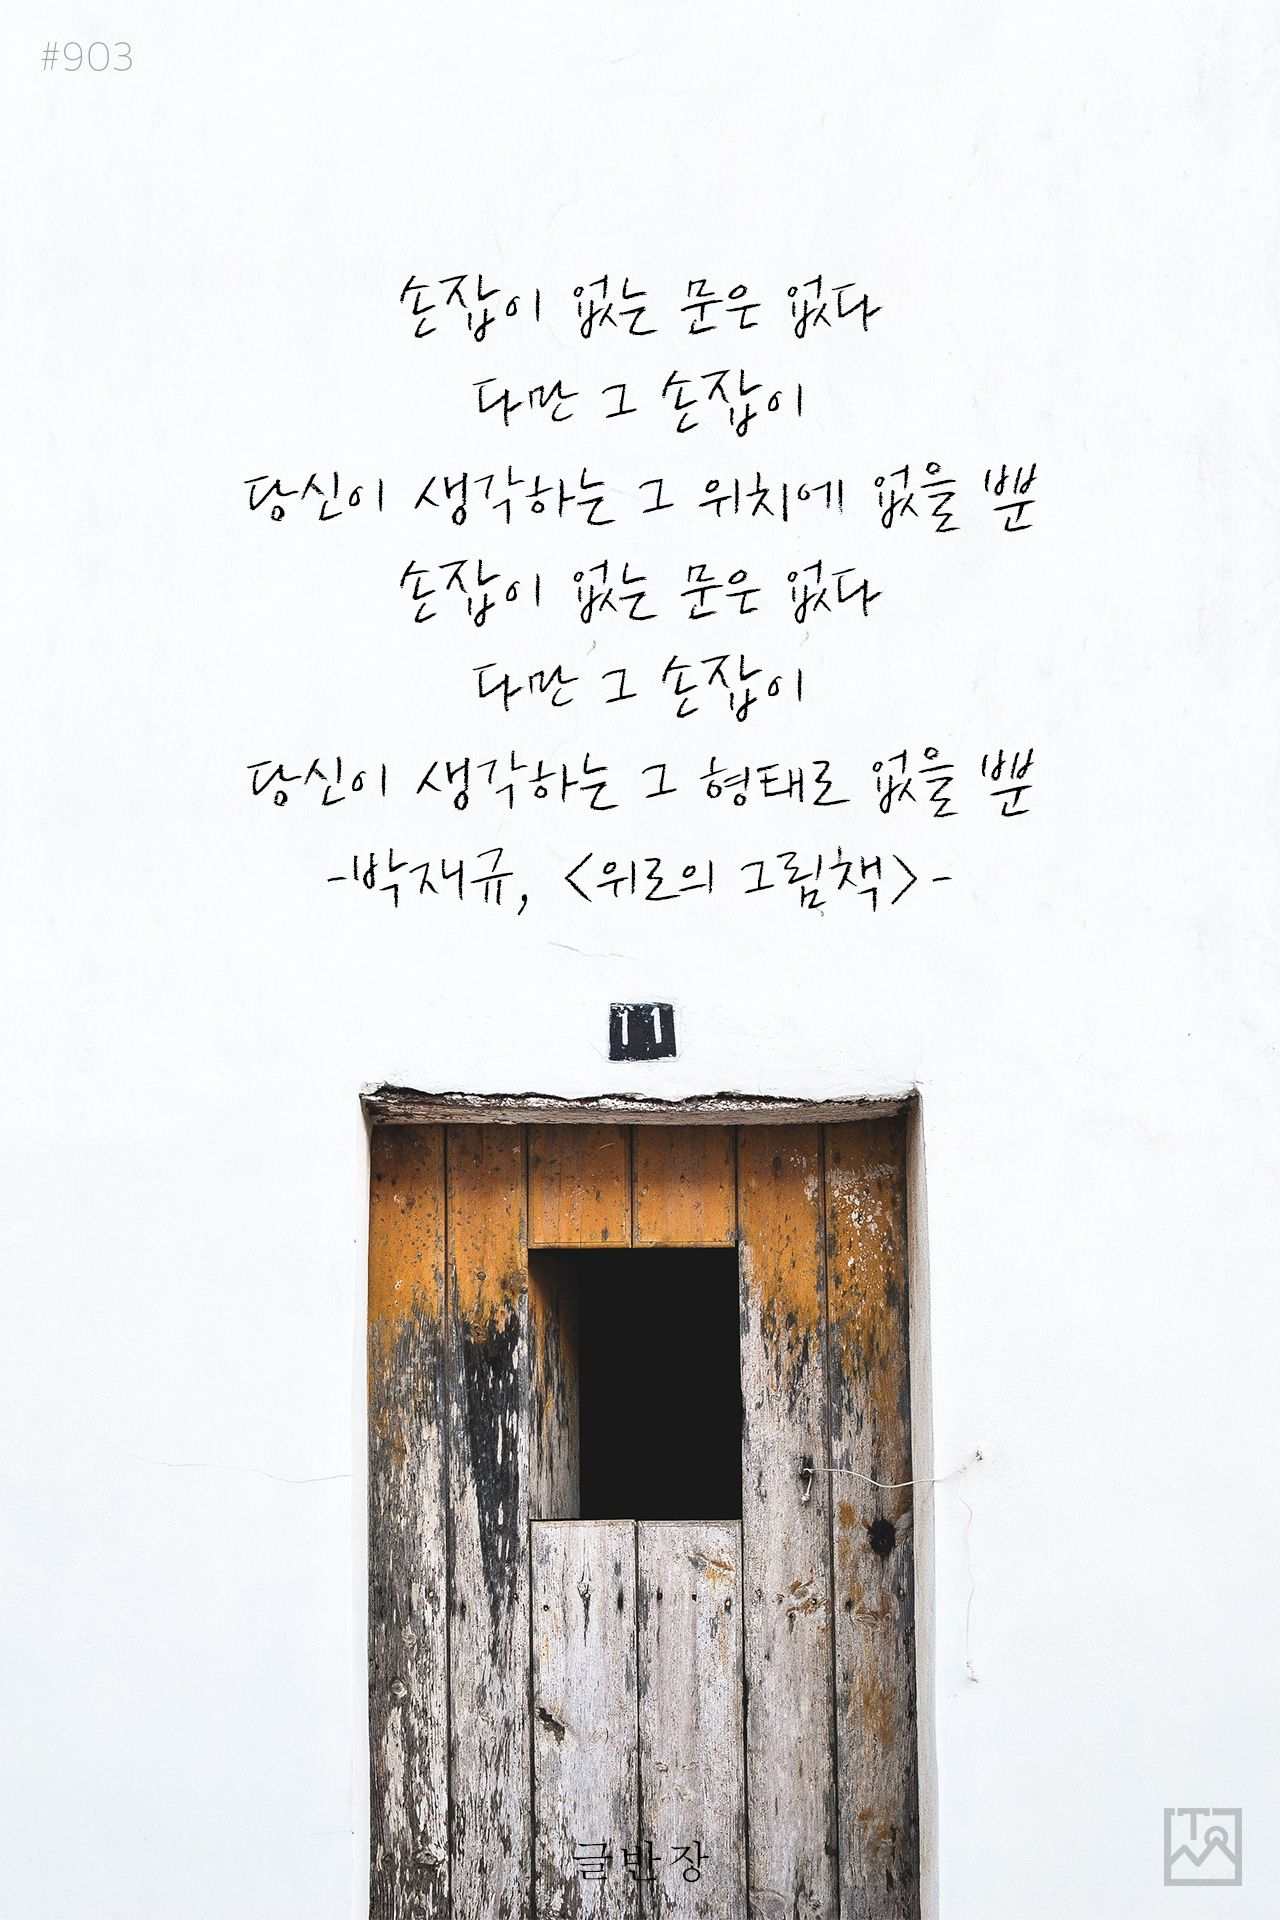 #903
손잡이 없는 문은 없다
다만 그 손잡이
당신이 생각하는 그 위치에 없을 뿐
손잡이 없는 문은 없다
다만 그 손잡이
당신이 생각하는 그 형태로 없을 뿐
-박재규, <위로의 그림책>-
11
글반장